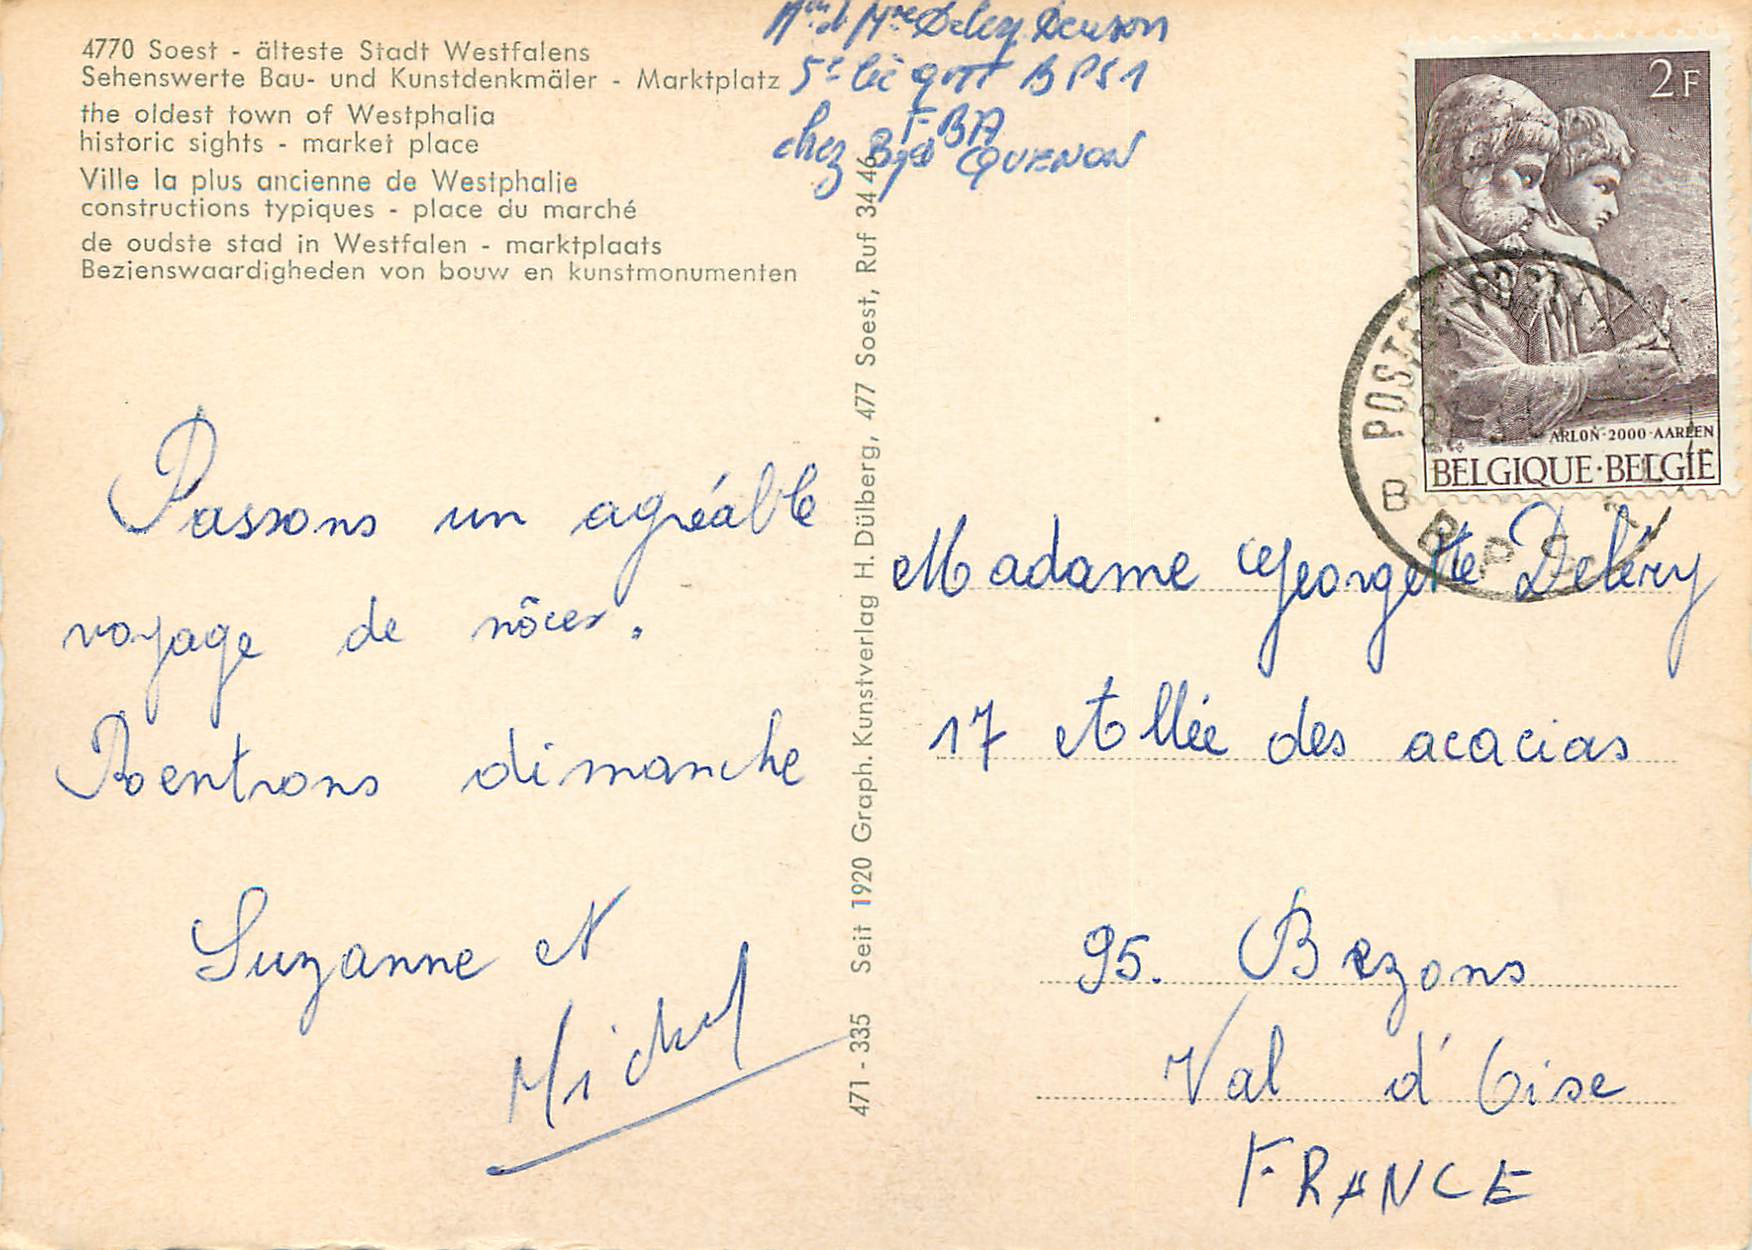 4770 Soest - älteste Stadt Westfalens
Sehenswerte Bau- und Kunstdenkmäler - Marktplatz
the oldest town of Westphalia
historic sights - market place
Ville la plus ancienne de Westphalie
constructions typiques - place du marché
de oudste stad in Westfalen - marktplaats
Bezienswaardigheden von bouw en kunstmonumenten
Passons un agréable
voyage de nôces.
Rentrons dimanche
Suzanne et
Michel
471 - 335 Seit 1920 Graph. Kunstverlag H. Dülberg, 477 Soest, Ruf 34 46
BPS 1
FBA
chez QUENON
2 F
ARLON·2000·AARLEN
BELGIQUE·BELGIË
B
BPS
Madame Georgette Deléry
17 Allée des acacias
95. Bezons
Val d'Oise
FRANCE